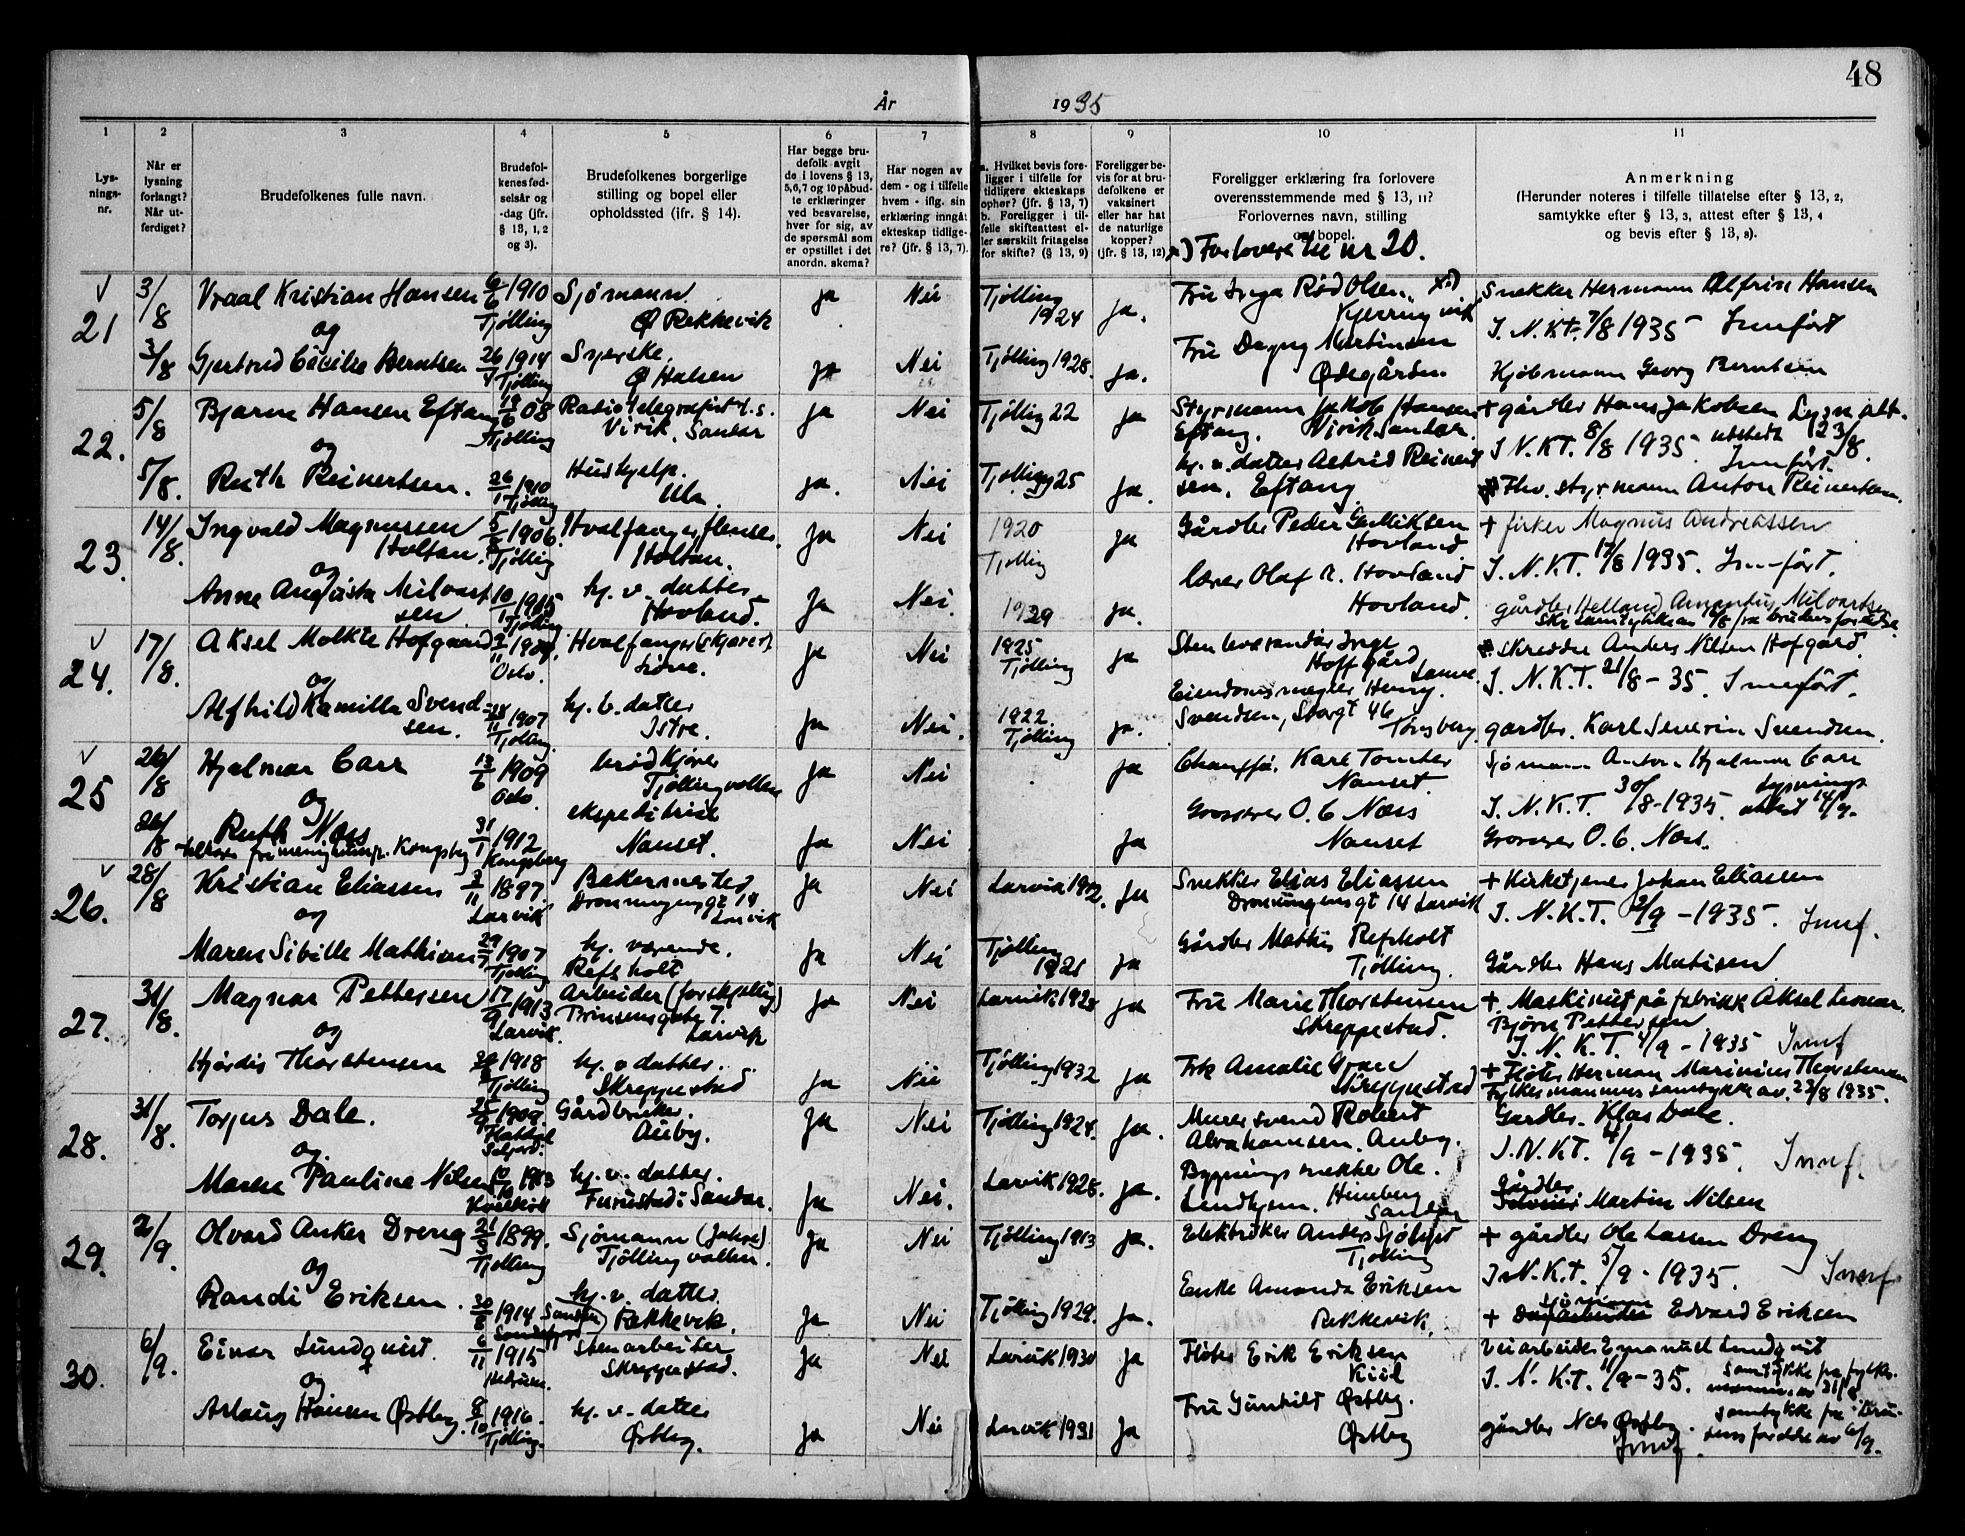 48
År 1935
1 2 3 4 5 6 7 8 9 10 11
Lysningsnr.
Når er lysning forlangt? Når utferdiget?
Brudefolkenes fulle navn.
Brudefolkenes fødselsår og -dag (jfr. § 13, 1, 2 og 3).
Brudefolkenes borgerlige stilling og bopel eller opholdssted (ifr. § 14).
Har begge brudefolk avgitt de i lovens § 13, 5, 6, 7 og 10 påbudte erklæringer ved besvarelse, hver for sig, av de spørsmål som er opstillet i det anordn. skema?
Har nogen av dem - og i tilfelle hvem - iflg. sin erklæring inngått ekteskap tidligere? (jfr. § 13, 7).
a. Hvilket bevis foreligger i tilfelle for tidligere ekteskaps ophør? (jfr. § 13, 7)
b. Foreligger i tilfelle skifteattest eller særskilt fritagelse for skifte? (§ 13, 9)
Foreligger bevis for at brudefolkene er vaksinert eller har hat de naturlige kopper? (jfr. § 13, 12)
Foreligger erklæring fra forlovere overensstemmende med § 13, 11? Forlovernes navn, stilling og bopel.
x) Forlovere til nr 20.
Anmerkning
(Herunder noteres i tilfelle tillatelse efter § 13, 2, samtykke efter § 13, 3, attest efter § 13, 4 og bevis efter § 13, 8).
21 3/8 Vraal Kristian Hansen 6/6 1910 Tjølling Sjømann Ø Rekkevik ja Nei Tjølling 1924 ja. Fru Inga Rød Olsen x) Kjerringvik Snekker Hermann Alfrin Hansen
og
I. N. KT. 7/8 1935 Innført
3/8 Gjertrud Cecilie Berntsen 26/4 1914 Tjølling Syerske Ø Halsen ja Nei Tjølling 1928. ja. Fru Dagny Martinsen Ødegården Kjøbmann Georg Berntsen
22. 5/8 Bjarne Hansen Eftang 19/6 08 Tjølling Radiotelegrafist Virik, Sandar ja Nei Tjøllig 22 ja Styrmann Jakob Hansen Eftang. Virik Sandar. + gårdbr Hans Jakobsen Lysn.att.
og
I N. KT. 8/8 1935. utstedt 23/8. Innført.
5/8. Ruth Reinertsen. 26/1 1910 Tjølling Hushjelp. Ula ja. Nei Tjølling 25 ja. hj. v. datter Astrid Reinertsen. Eftang. Fhv. styrmann Anton Reinertsen.
23. 14/8. Ingvald Magnussen Holtan. 5/5 1906. Tjølling Hvalfanger flenser. Holtan. ja Nei 1920 Tjølling ja Gårdbr Peder Hovland + fisker Magnus Andreassen
og
I. N. KT. 17/8 1935. Innført.
Anne Augusta Milvartsen 10/1 1915 Tjølling hj. v. datter Hovland. ja Nei. 1929 ja. lærer Olaf A. Hovland Hovland. gårdbr Helland Amantus Milvartsen
Skr samtykke av 14/8 fra brudens foreldre.
24. 17/8. Aksel Molkte Hofgaard Oslo. Hvalfanger (skjærer) ja Nei 1925 Tjølling ja Inge Hoffgård skredder Anders Nilsen Hofgård.
og
I. N. K.T. 21/8 - 35. Innført.
Alfhild Kamilla Svendsen. 1907 Tjølling hj. v. datter Istre. ja Nei. 1922. Tjølling ja. Eiendomsmegler Henry Svendsen, Storgt 46 Tønsberg gårdbr. Karl Severin Svendsen.
25 26/8 Hjalmar Carr 13/6 1909 Oslo. brødkjører Tjøllingvollen ja Nei ja Chauffø. Karl Tomter Nanset. Sjømann Anton Hjalmar Carr
og
I. N. K.T. 30/8-1935. Lysnings attest 14/9.
26/8 Ruth Næss 31/1 1912 Kongsberg ekspeditrise Nanset. ja Nei ja Grosserer O. C Næss Nanset Grosserer O. C. Næss.
26. 28/8 Kristian Eliassen 3/11 1897. Larvik Bakermester Dronningensgt 14 Larvik ja Nei Larvik 1902. ja Snekker Elias Eliassen Dronningensgt 14 Larvik + Kirketjener Johan Eliassen
og
I. N. K.T. 2/9 - 1935. Innf.
Maren Sibille Mathisen 29/7 1907 Tjølling hj. værende. Refsholt ja Nei Tjølling 1921 ja Gårdbr Mathis Refsholt Tjølling. Gårdbr Hans Matisen
27. 31/8. Magnar Pettersen 17/9 1913 Larvik. Arbeider (forskjellig) Prinsensgate 7. Larvik ja Nei Larvik 1928 ja Fru Marie Thorstensen Skreppestad. + Maskinist på fabrikk Aksel Leonar.
Bjørn Pettersen
og
I. N. K.T. 4/9 - 1935 Innf
Hjørdis Thorstensen 1918 Tjølling hj. v datter. Skreppestad ja Nei Tjølling 1932 ja Frk Amalie Skreppestad + Fløter Herman Marinius Thorstensen
Fylkesmannens samtykke av 23/8 1935.
28. 31/8. Torjus Dale. 1909. Gårdbruker. Auby. ja Nei Tjølling 1924. ja. Murersvend Robert Abrahamsen. Auby. Gårdbr. Klas Dale.
og
I. N. KT. 4/9 - 1935. Innf.
Maren Pauline Nilsen 10/10 1913 hj. v. datter. Furustad i Sandar. ja Nei. Larvik 1928. ja. Bygningssnekker Ole Lindhjem. Himberg Sandar Gårdbr Martin Nilsen
29. 2/9. Olvard Anker Dreng 21/3 1899. Tjølling Sjømann (Jahre) Tjølling vollen. ja Nei Tjølling 1913 ja. Elektriker Anders Tjølling + gårdbr Ole Larsen Dreng
og
I. N. K.T. 5/9 - 1935. Innf
Randi Eriksen. 30/8 1914 Sandefjord hj. v. datter. Rekkevik. ja Nei Tjølling 1929. ja. Enke Amanda Eriksen Rekkevik. + sjømann Edvard Eriksen
30. 6/9. Einar Lundquist. 6/11 1915 Hedrum. Stenarbeiter Skreppestad. ja Nei Larvik 1930 ja Fløter Erik Eriksen Kiil Veiarbeider Emanuel Lundquist
og
I. N. K.T. 11/9 - 35. Samtykke fra fylkesmannen av 31/8
Aslaug Hansen Østby. 8/10 1916. Tjølling. hj. v. datter Østby. ja Nei Larvik 1931 ja Fru Gunhild Østby. Østby gårdbr Nils Østby. samtykke fra brudens foreldre av 6/9. Innf.